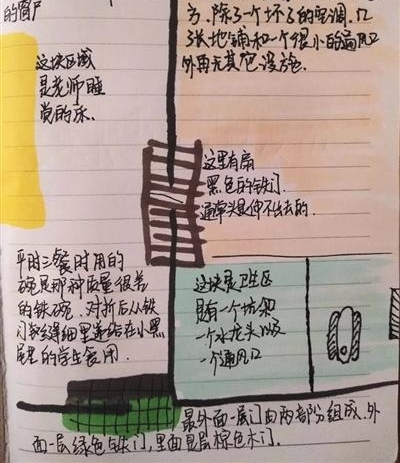 的窗户
方、除了一个坏了的空调、几
张地铺和一个很小的通风口
外再无其它设施.
这块区域
是老师睡
觉的床.
这里有扇
黑色的铁门.
通常头是伸不出去的.
平时三餐时用的
碗是那种质量很差
的铁碗.对折后从铁
门的缝细里递给在小黑
屋里的学生食用.
这块是卫生区
具有一个坑架
一个水龙头以及
一个通风口
最外面一层门由两部分组成.外
面一层绿色铁门,里面是层棕色木门.